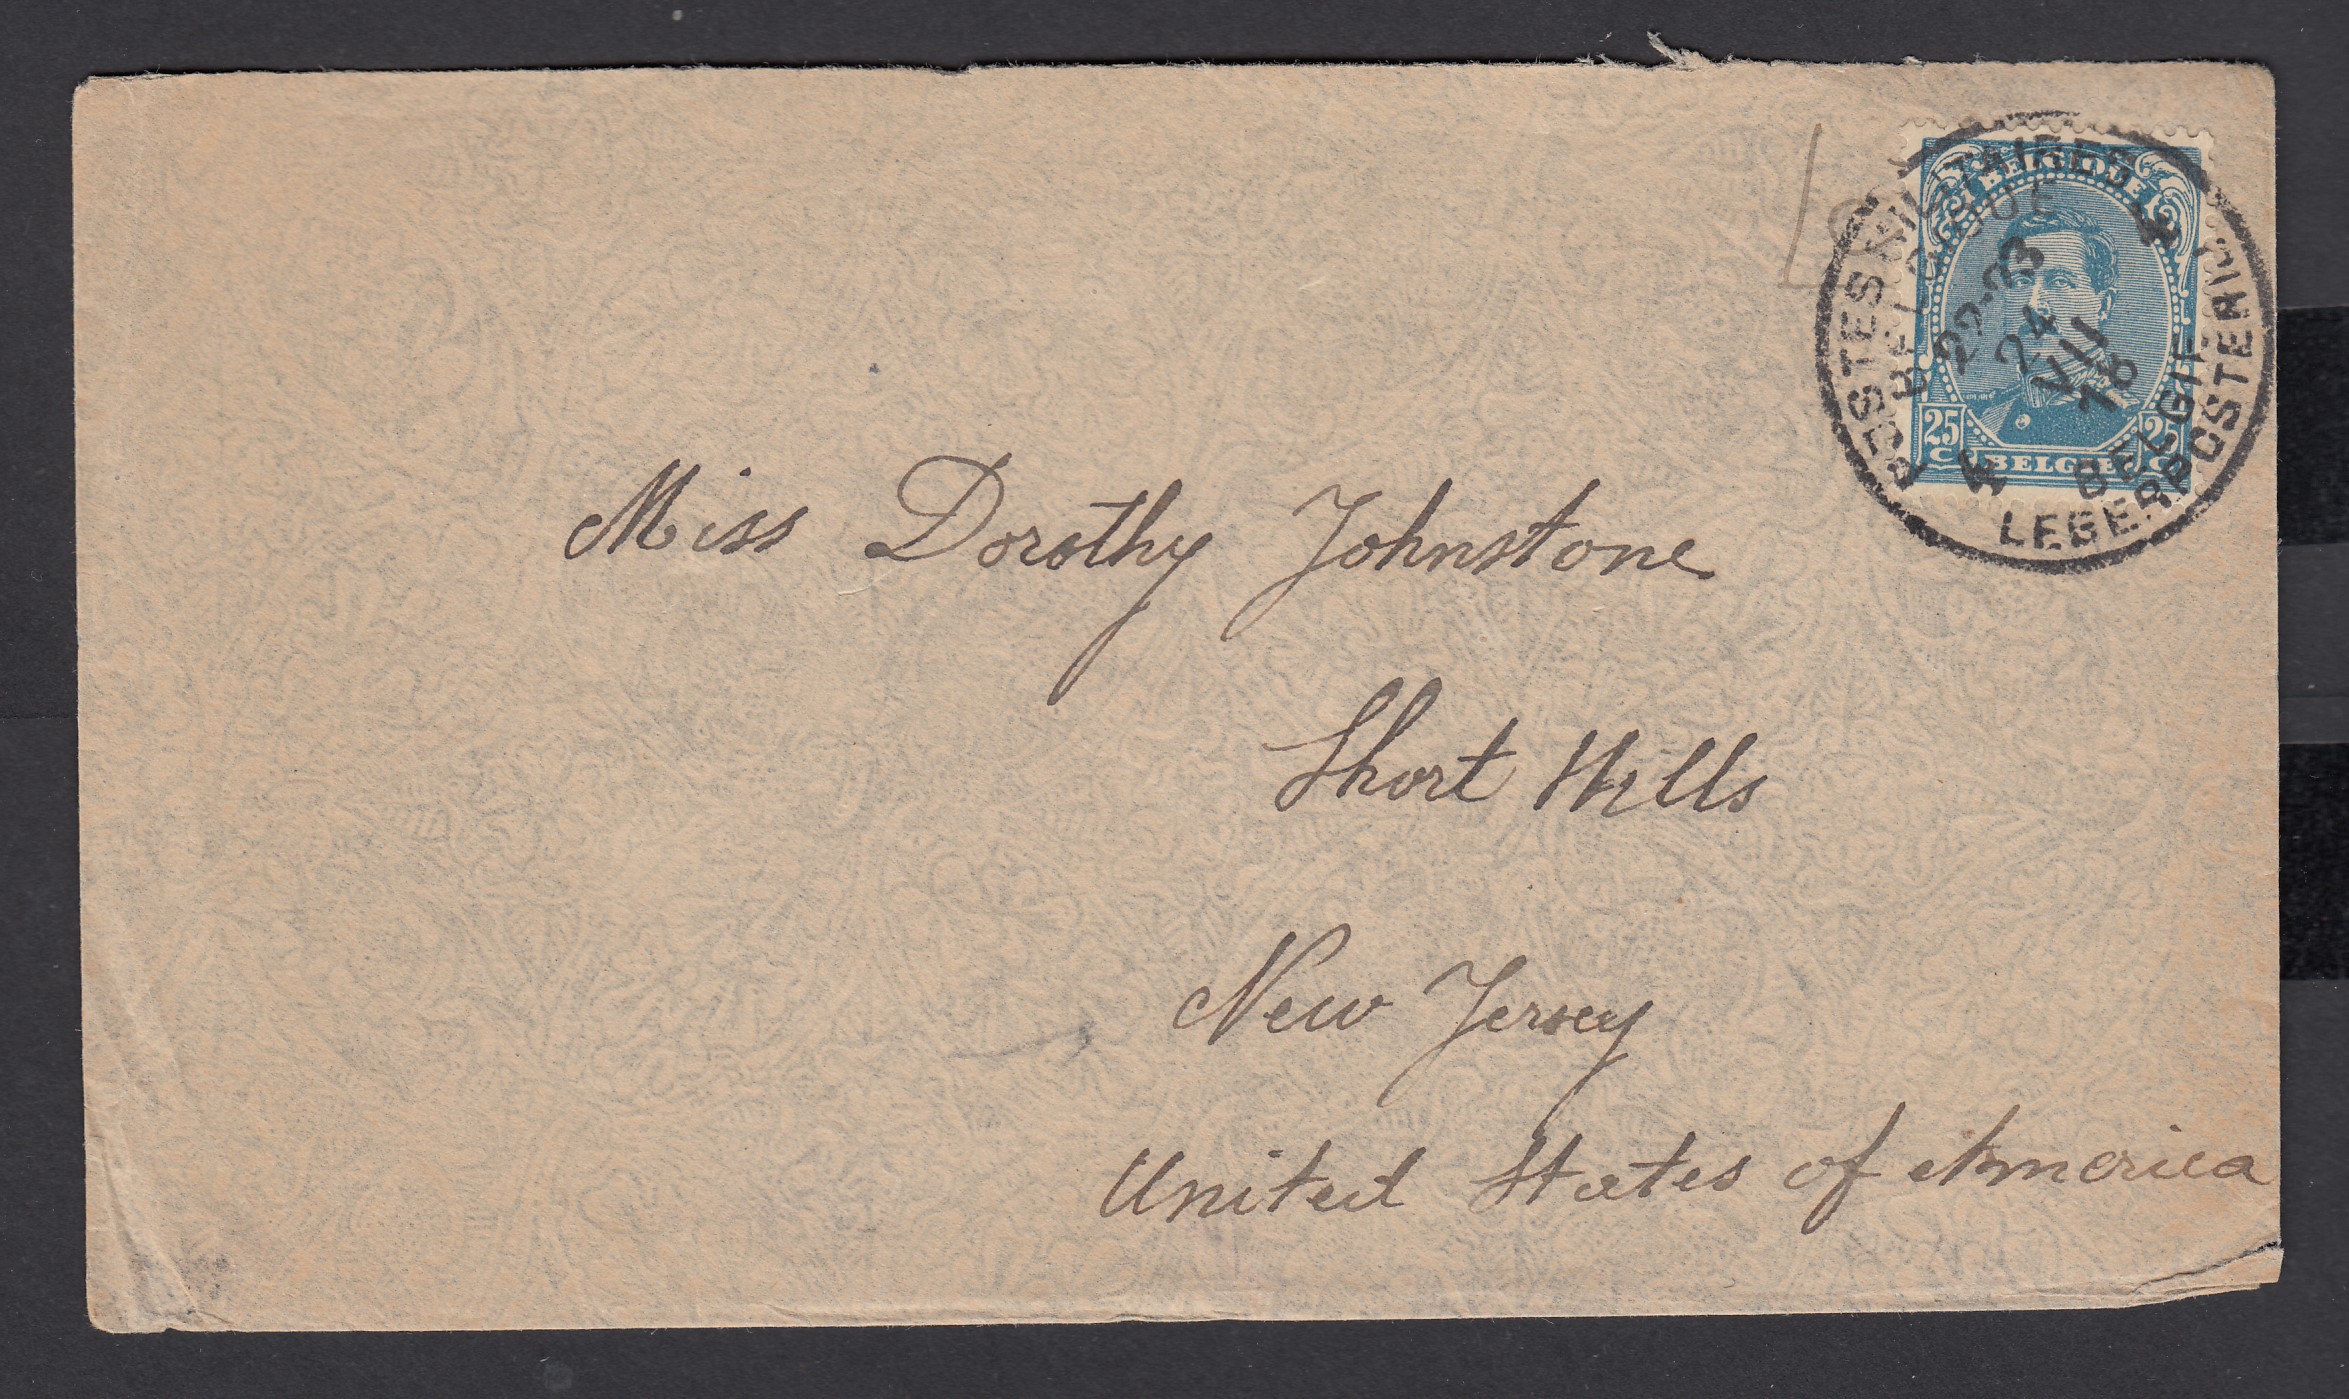 POSTES MILITAIRES
BELGIQUE
22-23
24
VII
18
4 4
BELGIË
LEGERPOSTERIJ
BELGIQUE
25 25
C BELGIË C
Miss Dorothy Johnstone
Short Hills
New Jersey
United States of America